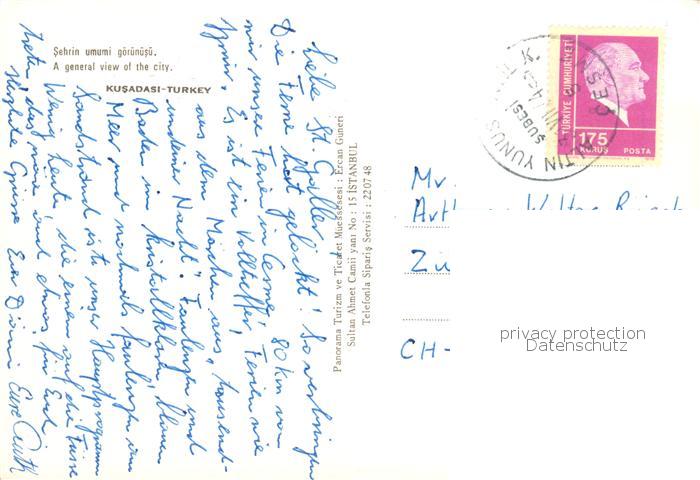 Şehrin umumi görünüşü.
A general view of the city.
KUŞADASI-TURKEY
Liebe St. Galler!
Die Ferne hat gelockt! So verbringen
wir unsere Ferien in Çesme, 80 km von
Izmir. Es ist ein Volltreffer! Ferien wie
aus dem Märchen aus „tausend-
undeiner Nacht". Faulenzen und
Baden im kristallklaren, blauen
Meer und nochmals faulenzen am
Sandstrand ist unser Hauptprogramm.
Wenig Leute, die einem auf die Füsse
treten, das wäre auch etwas für Euch.
Herzliche Grüsse Eure
Panorama Turizm ve Ticaret Müessesesi : Ercan Güneri
Sultan Ahmet Camii yanı No : 15 İSTANBUL
Telefonla Sipariş Servisi : 22 07 48
TÜRKİYE CUMHURİYETİ
175
KURUŞ POSTA
ALTIN YUNUS
ŞUBESİ
ÇEŞ
Mr.
CH-
privacy protection
Datenschutz